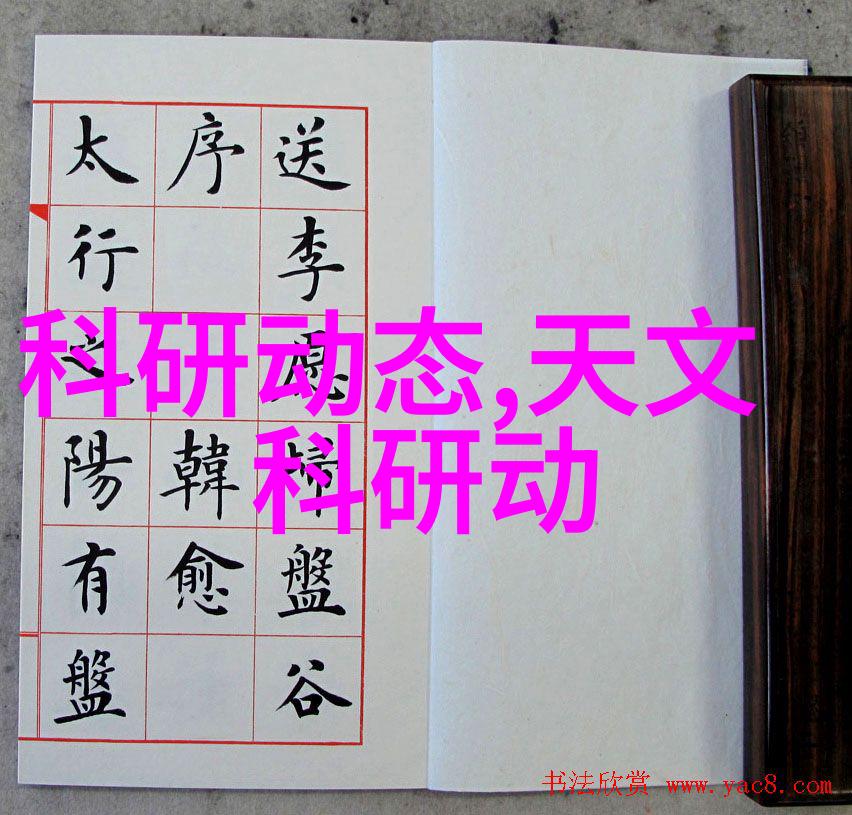 送李愿歸盤谷
序 韓愈
太行之陽有盤
科研动态,天文
科研动
书法欣赏 www.yac8.com